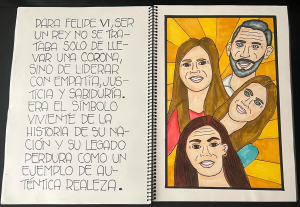 PARA FELIPE VI, SER
UN REY NO SE TRA-
TABA SOLO DE LLE-
VAR UNA CORONA,
SINO DE LIDERAR
CON EMPATÍA, JUS-
TICIA Y SABIDURÍA.
ERA EL SÍMBOLO
VIVIENTE DE LA
HISTORIA DE SU NA-
CIÓN Y SU LEGADO
PERDURA COMO UN
EJEMPLO DE AU-
TÉNTICA REALEZA.